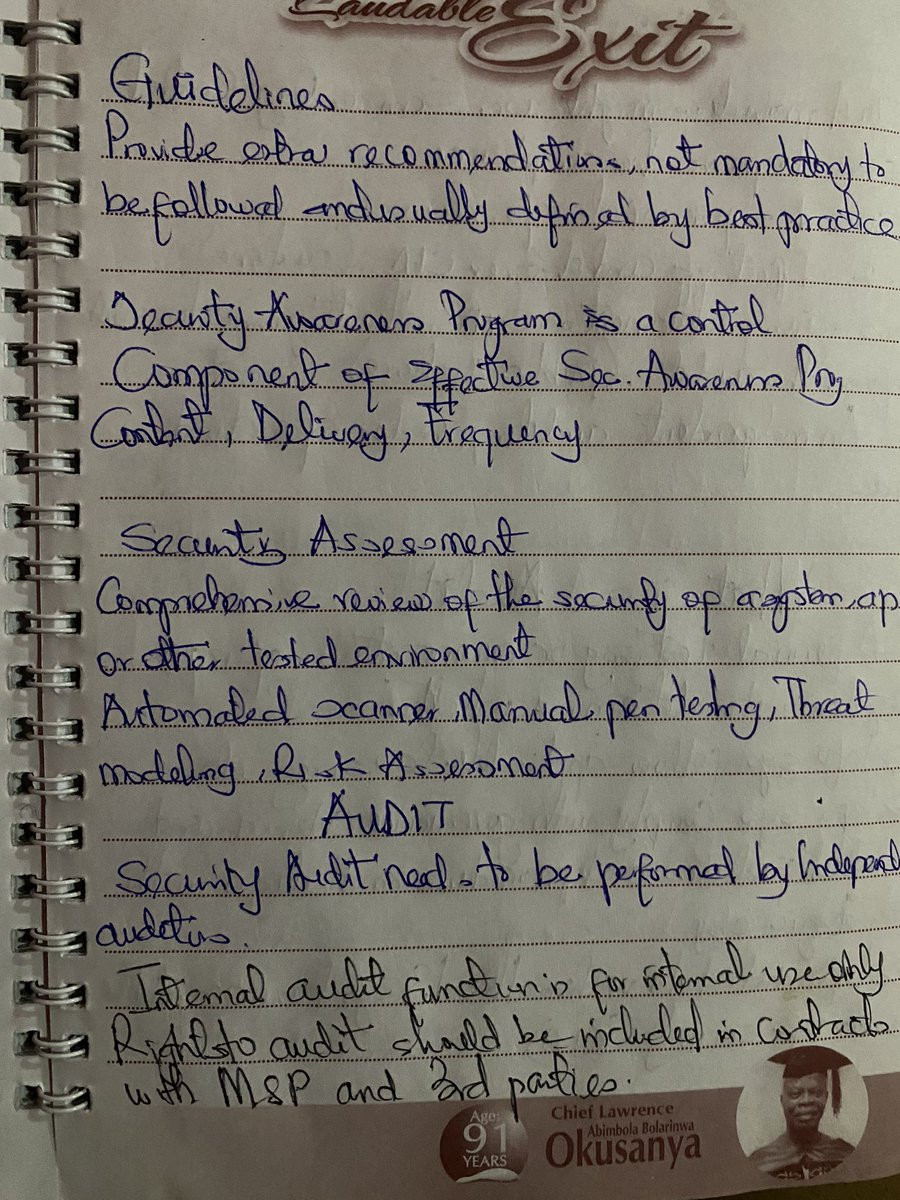 Laudable
Exit
Guidelines
Provide extra recommendations, not mandatory to
be followed and usually defined by best practice
Security Awareness Program is a control
Component of Effective Sec. Awareness Prog
Content, Delivery, Frequency
Security Assessment
Comprehensive review of the security of a system, ap
or other tested environment
Automated scanner, Manual pen testing, Threat
modeling, Risk Assessment
AUDIT
Security Audit needs to be performed by Independ
auditors.
Internal audit function is for internal use only
Rights to audit should be included in contracts
with MSP and 3rd parties.
Age:
91
YEARS
Chief Lawrence
Abimbola Bolarinwa
Okusanya